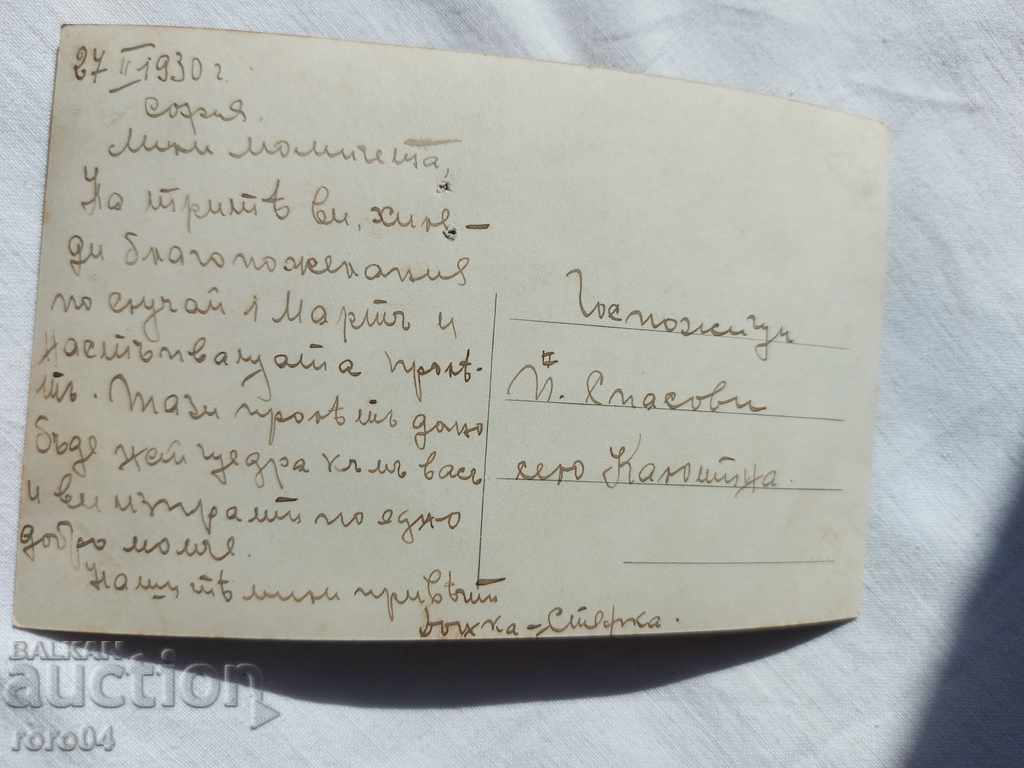 27 II 1930 г.
София.
Мили момичета,
На тритѣ ви, хиля-
ди благопожелания
по случай 1 Мартъ и
настъпващата пролѣ-
ть. Тази пролѣть дано
бъде щедра къмъ васъ
и ви изпрати по едно
добро момче.
Нашитѣ мили привѣти
Стефка.
Госпожици
Й. Спасови
село
BALKAN
auction
roro04